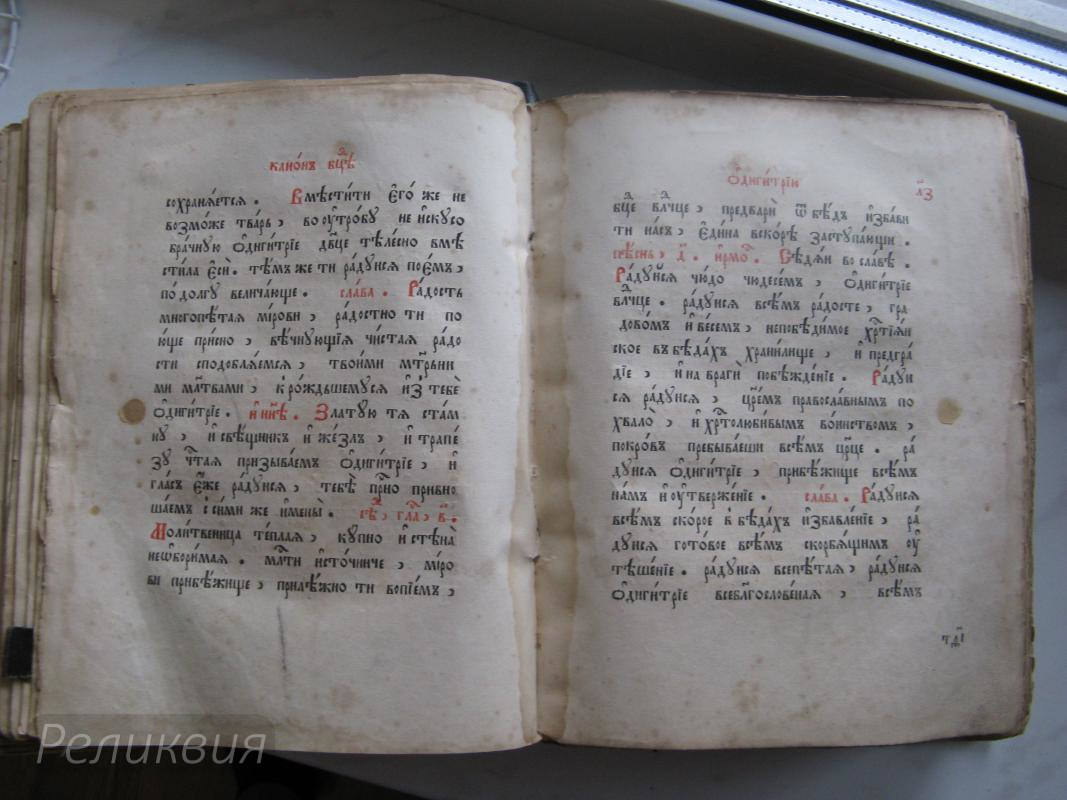 канѡ́нъ бцⷣе
сохраня́ется . Вмѣсти́ти є҆го́ же не
возмо́же тва́рь , во ѹ҆тро́бу не и҆скусо
бра́чную ѻ҆диги́трїе дв҃це тѣле́сно вмѣ
сти́ла є҆сѝ . тѣ́мъ же ти ра́дуися пое́мъ ,
по до́лгу велича́юще . сла́ва . Ра́дость
многопѣ́тая мі́рови , ра́достно ти по
ю́ще при́сно , вѣ́чнующїя чи́стая ра́до
сти сподобля́емся , твои́ми мт҃рьни
ми мл҃твами , к ро́ждьшемуся и҆з̾ тебѐ
ѻ҆диги́трїе . и҆ нн҃ѣ . Злату́ю тя ста́м
ну , и҆ свѣ́щникъ и҆ же́злъ , и҆ трапе́
зу чⷭ҇тая призыва́емъ ѻ҆диги́трїе , и҆
гла́съ є҆́же ра́дуися , тебѣ̀ прⷭ҇но приѡно
ша́емъ с си́ми же и҆ме́ны . сѣⷣ , гла́ , в҃ .
Моли́твеница те́плая , ку́пно и҆ стѣна̀
неѡбори́мая . млⷭ҇ти и҆сто́чниче , мі́ро
ви прибѣ́жище , прилѣ́жно ти вопїе́мъ ,
ѻ҆диги́трїю
л҃з
бцⷣе влⷣчце , предварѝ ѿ бѣ́дъ и҆зба́ви
ти на́съ , є҆ди́на вско́рѣ заступа́ющи .
пѣ́снь , д҃ . и҆рмо́ⷭ . Сѣдя́и во сла́вѣ .
Ра́дуйся чю́до чюдесе́мъ , ѻ҆диги́трїе
влⷣчце . ра́дуися всѣ́мъ ра́досте , гра
дово́мъ и҆ ве́семъ , непобѣди́мое хрⷭ҇тїя́н
ское в бѣда́хъ храни́лище , и҆ предгра́
дїе , и҆ на враги̑ побѣжде́нїе . Ра́дуи
ся ра́дуися , цр҃е́мъ правосла́внымъ по
хвало̀ , и҆ хрⷭ҇толюби́вымъ во́инством ,
покро́въ пребыва́еши всѣ́мъ цр҃це . ра́
дуися ѻ҆диги́трїе , прибѣ́жище всѣ́мъ
на́мъ и҆ ѹ҆твержде́нїе . сла́ва . Ра́дуися
всѣ́мъ ско́рое в бѣда́хъ и҆збавле́нїе , ра́
дуися гото́вое всѣ́мъ скорбя́щимъ ѹ҆
тѣше́нїе . ра́дуися всепѣ́тая , ра́дуися
ѻ҆диги́трїе всебл҃гослове́ная , всѣ́мъ
Реликвия